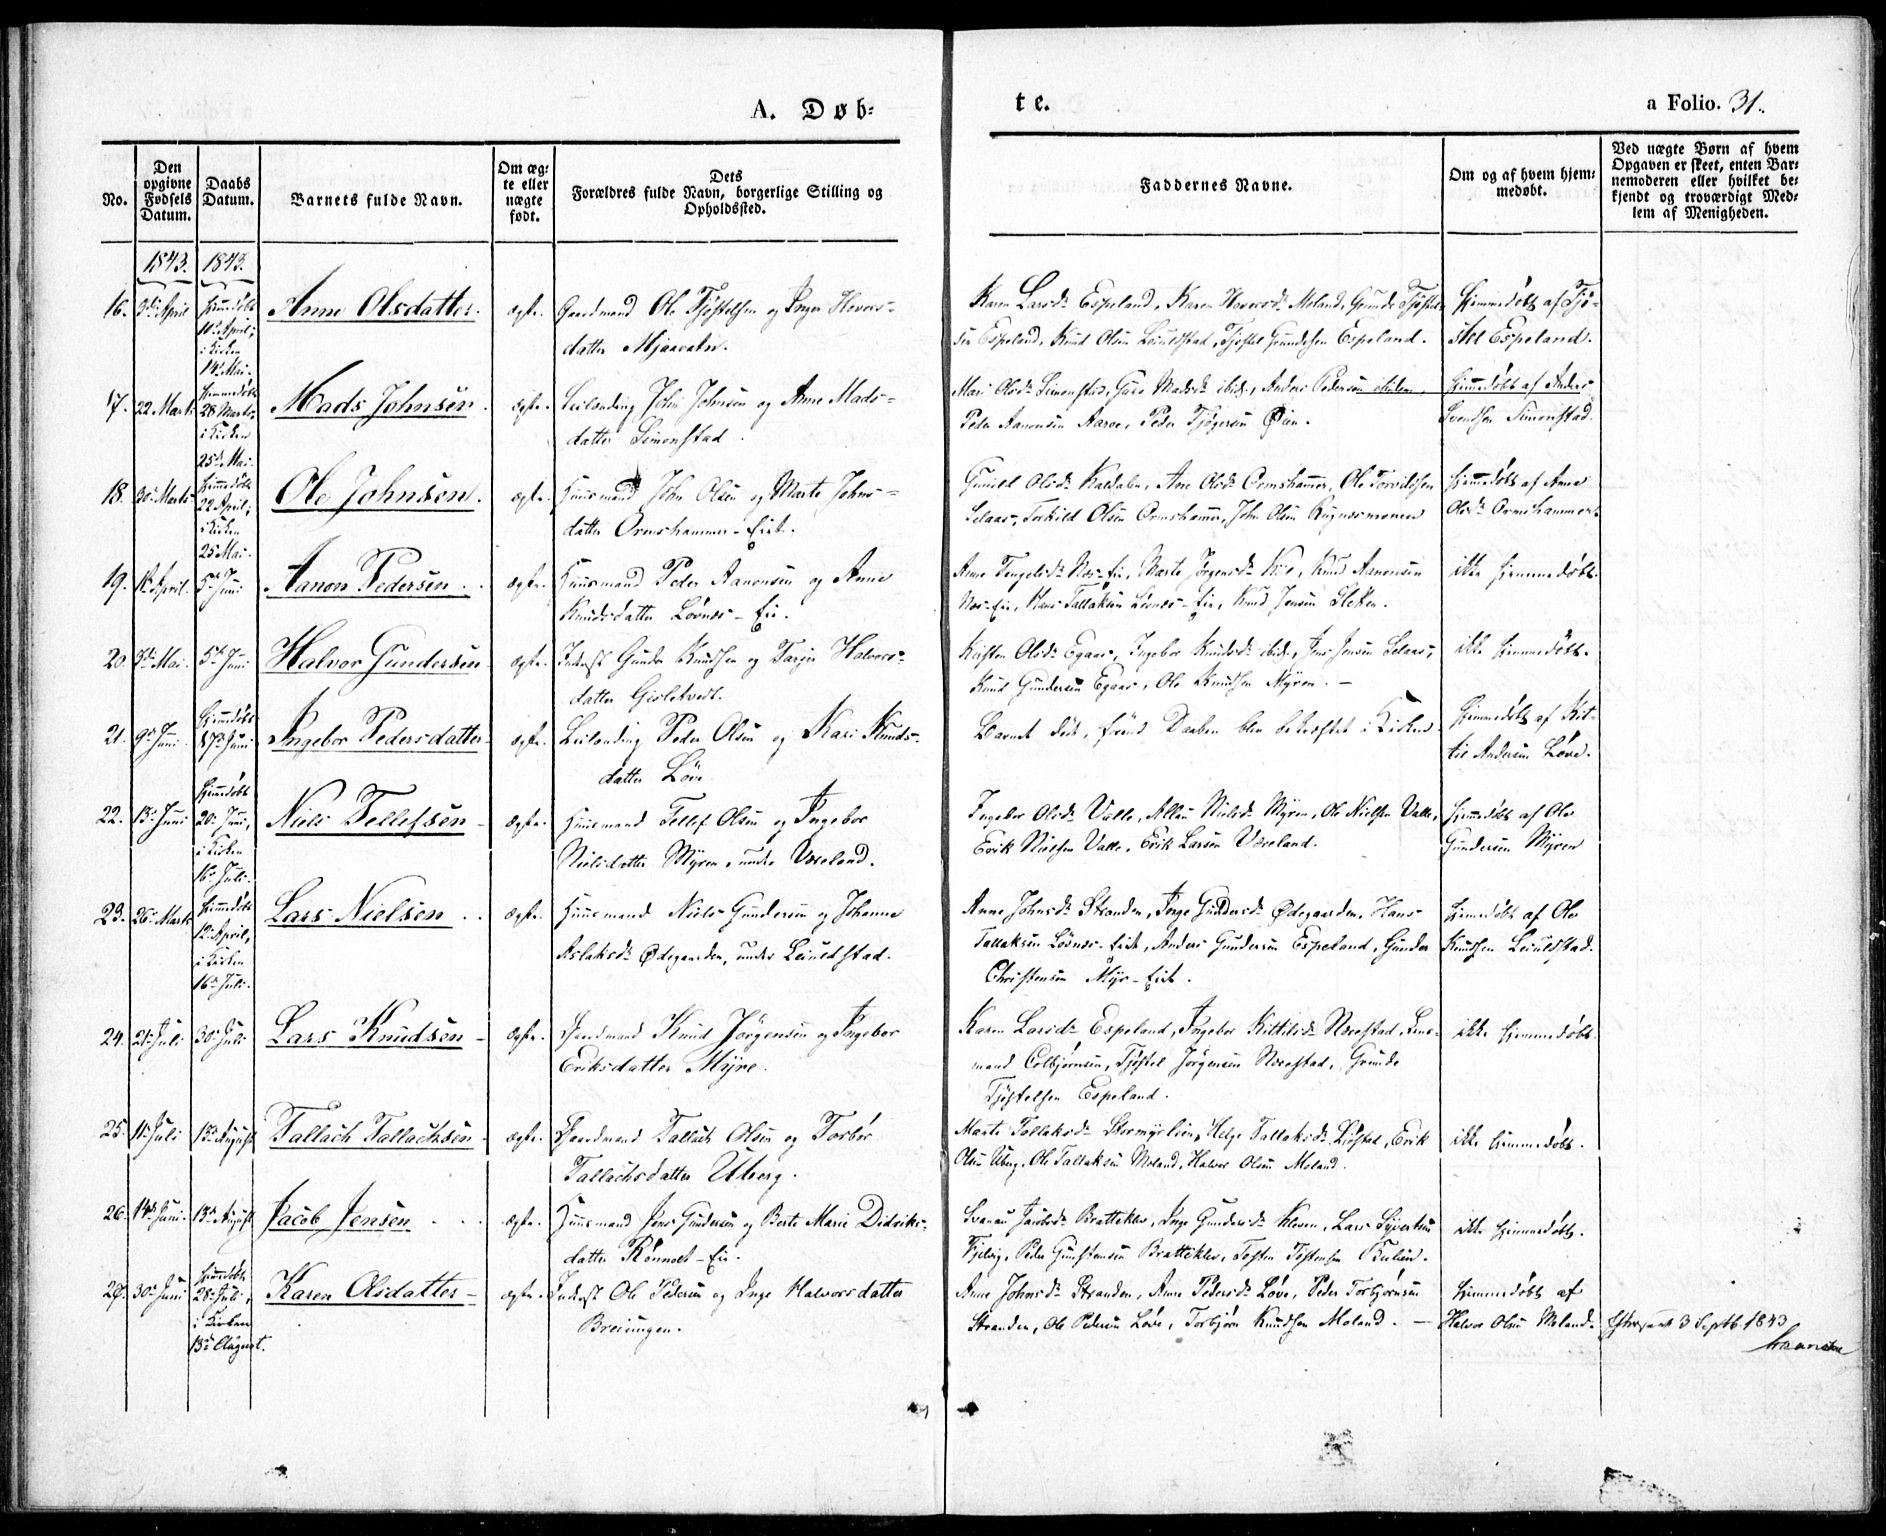 A. Døb-
te.
a Folio. 31.
No.
Den opgivne Fødsels Datum.
Daabs Datum.
Barnets fulde Navn.
Om æg-
te eller
uægte
født.
Dets
Forældres fulde Navn, borgerlige Stilling og
Opholdssted.
Faddernes Navne.
Om og af hvem hjem-
medøbt.
Ved uægte Børn af hvem
Opgaven er skeet, enten Bar-
nemoderen eller hvilket be-
kjendt og troværdigt Med-
lem af Menigheden.
1843. 1843.
16. 3die April hjemmedøbt 10de April, i Kirken 14de Mai. Anne Olsdatter. ægte. Gaardmand Ole Tjøstelsen og Inger Hovers-
datter Mjaavatn.
Karen Larsdr Espeland, Karen Hoversdr Moland, Grunde Tjøstel-
sen Espeland, Knud Olsen Leuuldstad, Tjøstel Grundesen Espeland.
hjemmedøbt af Tjø-
stel Espeland.
17. 22 Marts. hjemmedøbt 28 Marts, i Kirken 25de Mai. Mads Johnsen. ægte. Leilænding John Johnsen og Anne Mads-
datter Simonstad.
Mari Olsdr Simonstad, Madsdr ibid., Anders Pedersen ibidem,
Peder Aanonsen Aaree, Peder Øien.
hjemmedøbt af Anders
Svendsen Simonstad.
18. 30 Marts. hjemmedøbt 22 April, i Kirken 25 Mai. Ole Johnsen. ægte. Huusmand John Olsen og Marte Johns-
datter Ormshammer-Eiet.
Gunild Olsdr Kaldalen, Ane Olsdr Ormshammer, Ole
Selaas, Torkild Olsen Ormshammer, John Olsen Rugnæsmoen
hjemmedøbt af Anna
Olsdr Ormshammer.
19. April. 5te Juni Aanon Pedersen. ægte. Huusmand Peder Aanonsen og Anne
Knudsdatter Løvnes-Eie.
Anne Næs-Eie, Marte Jørgensdr Kile, Knud Aanonsen
Næs-Eie, Hans Tallaksen Løvnes-Eie, Knud Jensen Sletten.
ikke hjemmedøbt.
20. 3die Mai. 5te Juni Halvor Gundersen ægte. Inderst Gunder Knudsen og Tarjer Halvors-
datter Gisletvedt.
Kirsten Olsdr Egaas, Ingebor Knudsdr ibid., Jens Jensen Selaas,
Knud Gundersen Egaas, Ole Knudsen Myren. —
ikke hjemmedøbt.
21. 9de Juni. hjemmedøbt 17de Juni Ingebor Pedersdatter ægte. Leilænding Peder Olsen og Kari Knuds-
datter Løve
Barnet døde, førend Daaben blev bekræftet i Kirken.
hjemmedøbt af Kit-
til Andersen Løve.
22. 13 Juni hjemmedøbt 20 Juni, i Kirken 16 Juli. Niels Tellefsen ægte. Huusmand Tellef Olsen og Ingebor
Nielsdatter Myren, under Væreland.
Ingebor Olsdr Valle, Nielsdr Myren, Ole Nielsen Valle,
Erik Nielsen Valle, Erik Larsen Væreland.
hjemmedøbt af Ole
Gundersen Myren
23. 26 Marts hjemmedøbt 12 April, i Kirken 16de Juli. Lars Nielsen. ægte. Huusmand Niels Gundersen og Johanne
Aslaksdr Ødegaarden, under Leiuldstad.
Anne Johnsdr Stranden, Inge Gundersdr Ødegaarden, Hans
Tallaksen Løvnes-Eiet, Anders Gundersen Espeland, Gunder
Christensen Myr-Eiet.
hjemmedøbt af Ole
Knudsen Leiuldstad.
24. 21 Juli 30 Juli Lars Knudsen ægte. Gaardmand Knud Jørgensen og Ingebor
Eriksdatter Myre.
Karen Larsdr Espeland, Ingebor Kittilsdr Næsestad, Lens-
mand Colbjørnsen, Tjøstel Jørgensen Næsestad, Grunde
Tjøstelsen Espeland.
ikke hjemmedøbt.
25. 11 Juli 13de August Tallach Tallachsen ægte. Gaardmand Tallach Olsen og Torbør
Tallachsdatter Uberg.
Marte Tallaksdr Stormyrlien, Helge Tallaksdr Erik
Olsen Uberg, Ole Tallaksen Moland, Halvor Olsen Moland.
ikke hjemmedøbt.
26. 14de Juni. 13de August Jacob Jensen ægte. Huusmand Jens Gundersen og Berte Marie Didriks-
datter Eie.
Jacobsdr Bratteklev, Inge Gundersdr Kleven, Lars Syvertsen
Peder Gunstensen Bratteklev, Tosten Tostensen
ikke hjemmedøbt.
27. 30 Juni hjemmedøbt 28 Juli, i Kirken 13de August. Karen Olsdatter ægte. Inderst Ole Pedersen og Inge Halvorsdatter
Breiungen.
Anne Johnsdr Stranden, Anne Pedersdr Løve, Peder Torbjørnsen
Stranden, Ole Pedersen Løve, Torbjørn Knudsen Moland. —
hjemmedøbt af
Halvor Olsen Moland.
3 Septb. 1843